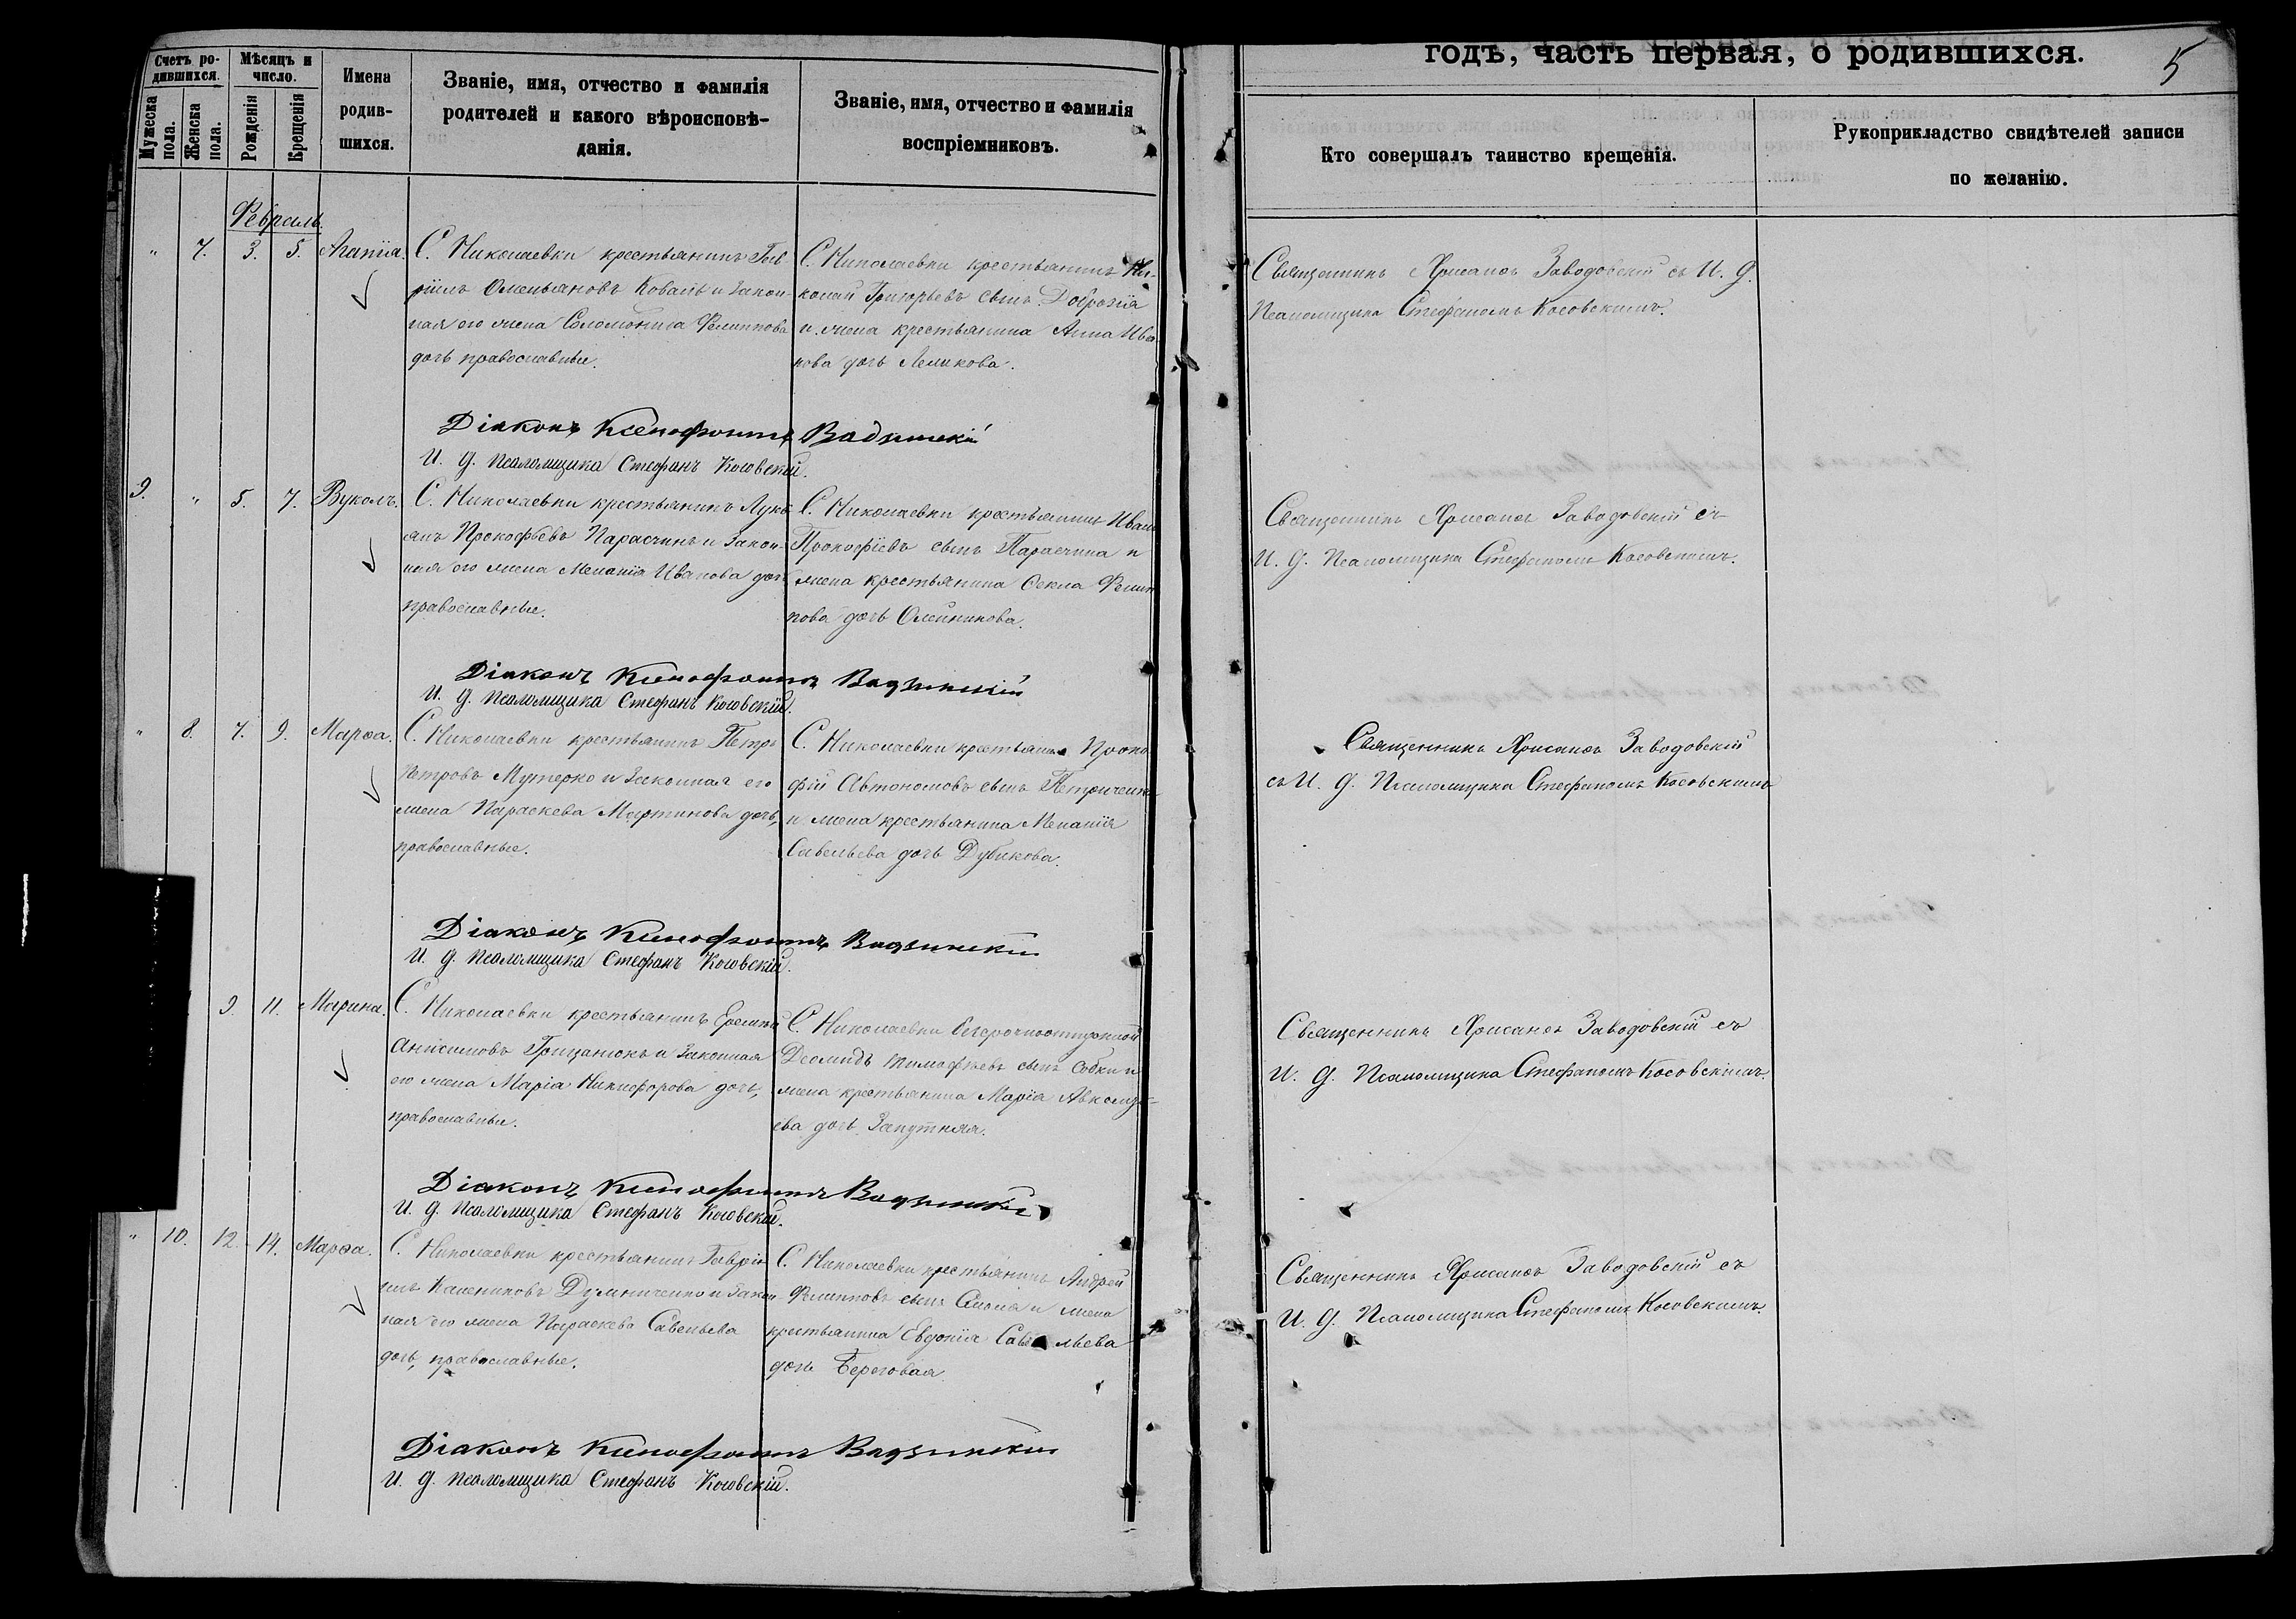 годъ, часть первая, о родившихся.
5
Счетъ родившихся.
Мужеска пола.
Женска пола.
Мѣсяцъ и число.
Рожденія
Крещенія
Имена родившихся.
Званіе, имя, отчество и фамилія
родителей и какого вѣроисповѣ-
данія.
Званіе, имя, отчество и фамилія
воспріемниковъ.
Кто совершалъ таинство крещенія.
Рукоприкладство свидѣтелей записи
по желанію.
Февраль.
" 7. 3. 5. Агапія.
С. Николаевки крестьянинъ Гав-
ріилъ Омельяновъ Коваль и закон-
ная его жена Соломонида Филиппова
дочь православные.
С. Николаевки крестьянинъ Ни-
колай Григорьевъ сынъ
и жена крестьянина Анна Ива-
нова дочь
Священникъ Хрисанѳъ Заводовскій съ И. д.
Псаломщика Стефаномъ Косовскимъ.
Діаконъ Ксенофонтъ
И. д. Псаломщика Стефанъ Косовскій.
9. " 5. 7. Вуколъ.
С. Николаевки крестьянинъ Лукь-
янъ Прокофьевъ Парасчинъ и закон-
ная его жена Меланія Иванова дочь
православные.
С. Николаевки крестьянинъ Иванъ
Прокофіевъ сынъ Парасчина и
жена крестьянина Ѳекла Филип-
пова дочь Олейникова.
Священникъ Хрисанѳъ Заводовскій съ
И. д. Псаломщика Стефаномъ Косовскимъ.
Діаконъ Ксенофонтъ
И. д. Псаломщика Стефанъ Косовскій.
" 8. 7. 9. Марѳа.
С. Николаевки крестьянинъ Петръ
Петровъ Мутерко и законная его
жена Параскева Мартинова дочь,
православные.
С. Николаевки крестьянинъ Проко-
фій Автономовъ сынъ Петриченко
и жена крестьянина Меланія
Савельева дочь Дубикова.
Священникъ Хрисанѳъ Заводовскій
съ И. д. Псаломщика Стефаномъ Косовскимъ
Діаконъ Ксенофонтъ
И. д. Псаломщика Стефанъ Косовскій.
9. 11. Марина.
С. Николаевки крестьянинъ Еремій
Анисимовъ Грицанюкъ и законная
его жена Марія Никифорова дочь,
православные.
С. Николаевки безсрочноотпускной
Деомидъ Тимофѣевъ сынъ Собки и
жена крестьянина Марія
ева дочь Запутняя.
Священникъ Хрисанѳъ Заводовскій съ
И. д. Псаломщика Стефаномъ Косовскимъ.
Діаконъ Ксенофонтъ
И. д. Псаломщика Стефанъ Косовскій.
" 10. 12. 14. Марѳа.
С. Николаевки крестьянинъ Гаврі-
илъ Калениковъ Думниченко и закон-
ная его жена Параскева Савельева
дочь, православные.
С. Николаевки крестьянинъ Андрей
Филипповъ сынъ и жена
крестьянина Евдокія Савельева
дочь Береговая.
Священникъ Хрисанѳъ Заводовскій съ
И. д. Псаломщика Стефаномъ Косовскимъ.
Діаконъ Ксенофонтъ
И. д. Псаломщика Стефанъ Косовскій.